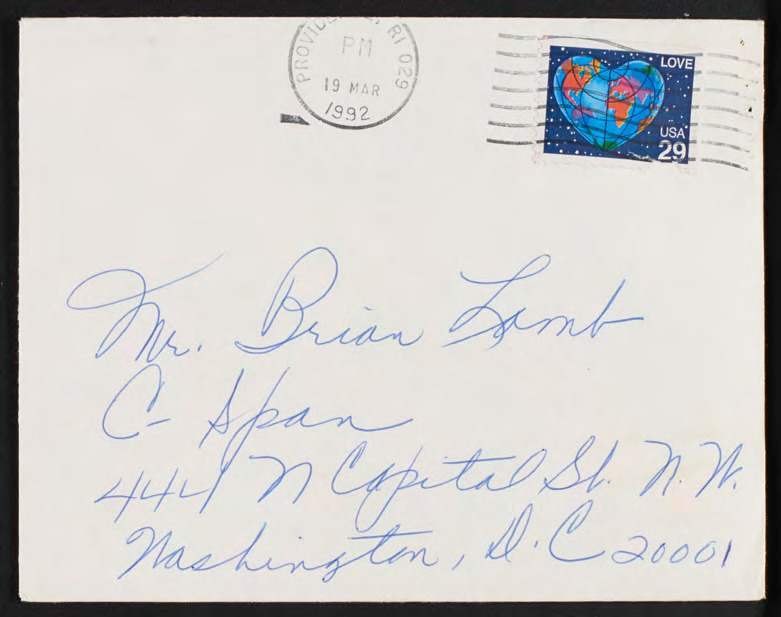 PROVIDENCE, RI 029
PM
19 MAR
1992
LOVE
USA
29
Mr. Brian Lamb
C-Span
444 N Capital St. N.W.
Washington, D.C 20001